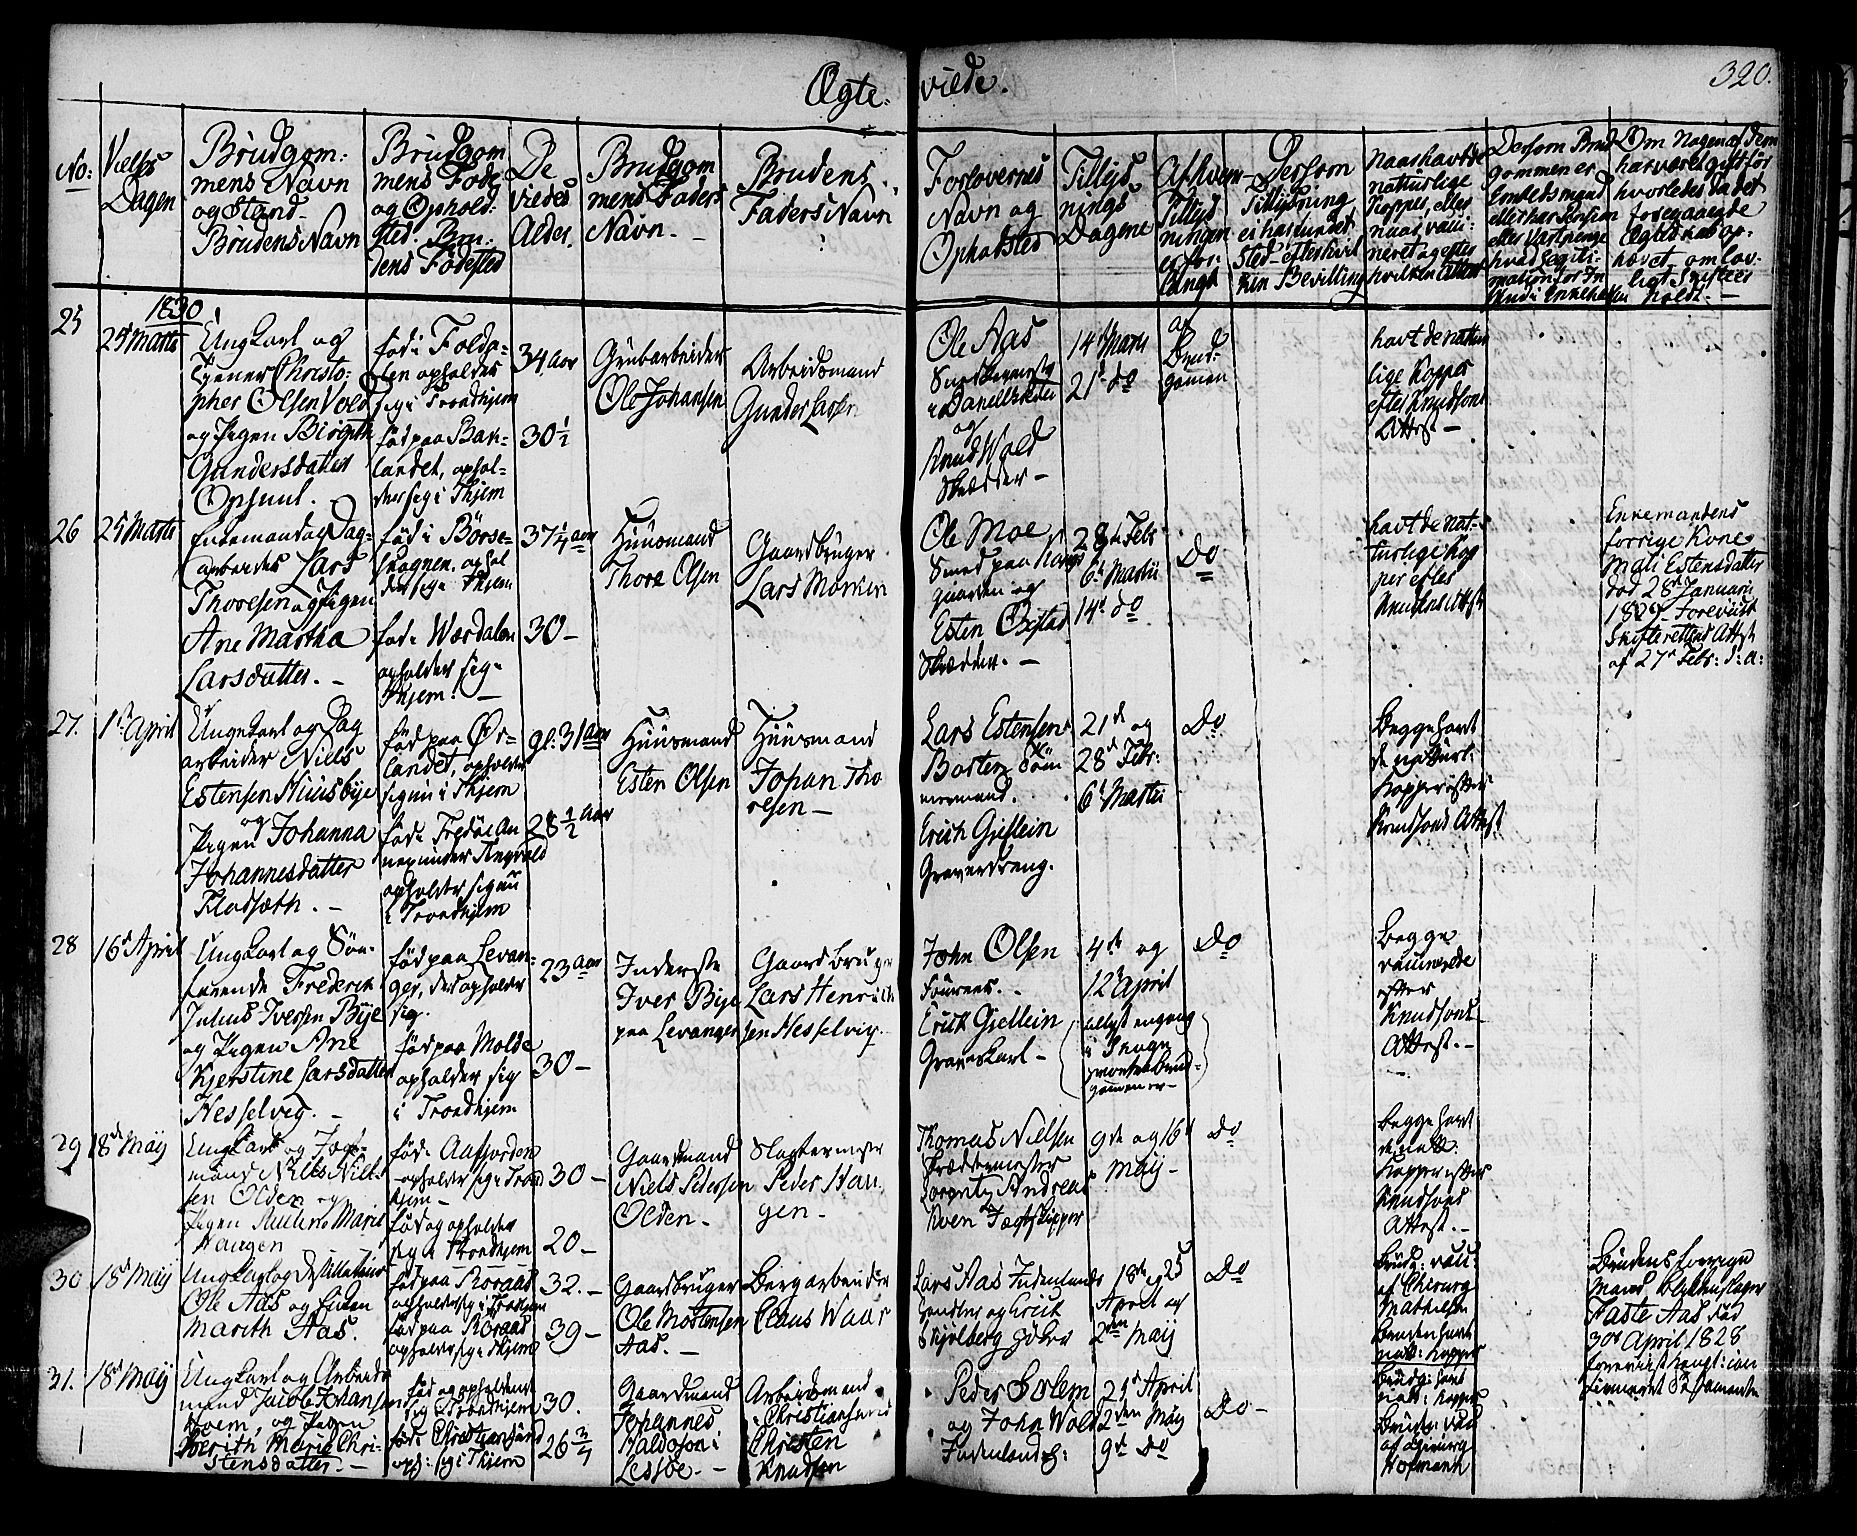 Ægte-
viede.
320.
No:
Vielses
Dagen
Brudgom:
mens Navn
og Stand.
Brudens Navn
Brudgom
mens Føde
og Ophold:
sted. Bru:
dens Fødested
De
viedes
Alder.
Brudgom
mens Faders
Navn.
Brudens
Faders Navn
Forlovernes
Navn og
Opholdsted
Tillys
nings
Dagene
Af hvem
Tillys
ningen
er for-
langt
Dersom
Tillysning
ei har fundet
Sted efter hvil
ken Bevilling
Naar havt de
naturlige
Kopper, eller
naar vacci-
neret og efter
hvilken Attest
Dersom Brud
gommen er
Embedsmand
eller har Pension
eller Vartpenge
Om Nogen af dem
har været gift før
hvorledes da det
foregaaende
Ægteskab op-
hævet, om lov-
ligt Skifte er
holdt. —
1830
25
25 Marts
Ungkarl og
Tjener Christo-
pher Olsen Vold
og Pigen Birgith
Gundersdatter
Opheml.
fød i Folda-
len opholder
sig i Trondhjem
fød paa Bak-
landet, ophol-
der sig i Thjem
34 aar
30 1/2
Grubarbeider
Ole Johansen
Arbeidsmand
Gunder Larsen
Ole Aas
og
Knud Wold
Skrædder —
14de Marts
21de do
af
Brud-
gomen
havt de natur
lige Kopper
efter Knudsons
Attest —
26
25 Marts
Enkemand og Dag-
arbeider Lars
Thoresen og Pigen
Ane Martha
Larsdatter. —
fød i Børse-
skognen, ophol
der sig i Thjem
fød i Wærdalen
opholder sig i
Thjem. —
37 1/4 aar
30 —
Huusmand
Thore Olsen
Gaardbruger
Lars Morken
Ole Moe
Smed paa Kongs
gaarden og
Esten Øxstad
Skrædder. —
28de Febr
6te Martii
14de do
Do
havt de nat-
turlige Kop
per efter
Knudsons Attest
Enkemandens
forrige Kone
Mali Estensdatter
død 28de Januarii
1829. Foreviist
Skifterettens Attest
af 27de Febr: d: a:
27.
1ste April
Ungkarl og Dag
arbeider Niels
Estensen Huusbye
og
Pigen Johanna
Johannesdatter
Fladsæth. —
fød paa Ør-
landet, opholder
sig nu i Thjem
fød i Fredøe An
nex under Tingvold
opholder sig nu
i Trondhjem
gl. 31 aar
28 1/2 aar
Huusmand
Esten Olsen
Huusmand
Johan Tho
resen —
Lars Estensen
Borten Tøm
mermand.
Erich Gjellein
Graverdreng.
21de og
28de Febr:
6te Martii
Do
Begge havt
de naturl:
Kopper efter
Knudsons Attest
28
16de April
Ungkarl og Søe-
farende Frederik
Julius Iversen Bye
og Pigen Ane
Kjerstine Larsdatter
Nesselvig. —
fød paa Levan-
ger, der opholder
sig.
fød paa Molde
opholder sig
i Trondhjem
23 aar
30 —
Inderste
Iver Bye
paa Levanger
Gaardbruger
Lars Henrich
sen Nesselvig.
John Olsen
Erich Gjellein
Graverkarl —
4de og
12te April
allyst engang
i Skogn
Do
Begge
vaccinerede
efter
Knudsons
Attest. —
29
18de May
Ungkarl og Jagt-
mand Niels Niel-
sen Olden og
Pigen Pauline Marie
Haugen
fød i Aafjorden
opholder sig i Trond
hjem —
fød og opholder
sig i Trondhjem
30 —
20. —
Gaardmand
Niels Pedersen
Olden. —
Slagtermester
Peder Hau
gen. —
Thomas Nielsen
Skræddermester
Lorentz Andreas
Kven Jagtskipper
9de og 16de
May —
Do
Begge havt
de natl:
Kopper efter
Knudsons
Attest. —
30
18de May
Ole Aas og Enken
Marith Aas.
fød paa Røraas
opholder sig i Trondhjem
fød paa Røraas
opholder sig i Thjem
32. —
39 —
Gaardbruger
Ole Mortensen
Aas. —
Bergarbeider
Claus Waar
Lars Aas Indenlands
handler og Erich
18de og 25
April og
2den May
Do
Brudg: vacc:
af Chirurg
Mathiesen
Bruden havt
nat: Kopper
Brudens forrige
Mand Blikkenslager
Faste Aas død
30te April 1828
31.
18de May
Ungkarl og Arbeids
mand Jacob Johansen
Hoem, og Pigen
Berith Marie Chri-
stensdatter. —
fød og opholdende
sig i Trondhjem
fød i Christiansund
oph: sig i Thjem
30.
26 3/4
Gaardmand
Johannes
Haldoson i
Lesjøe. —
Arbeidsmand
i Christiansund
Christen
Knudsen
Peder Sorlem
og John Wold
Indenlandsh:
25de April
2den May
9de do
Do —
Brudg: havt
nat: Kopper
Brude: vacc
af Chirurg
Hofmann